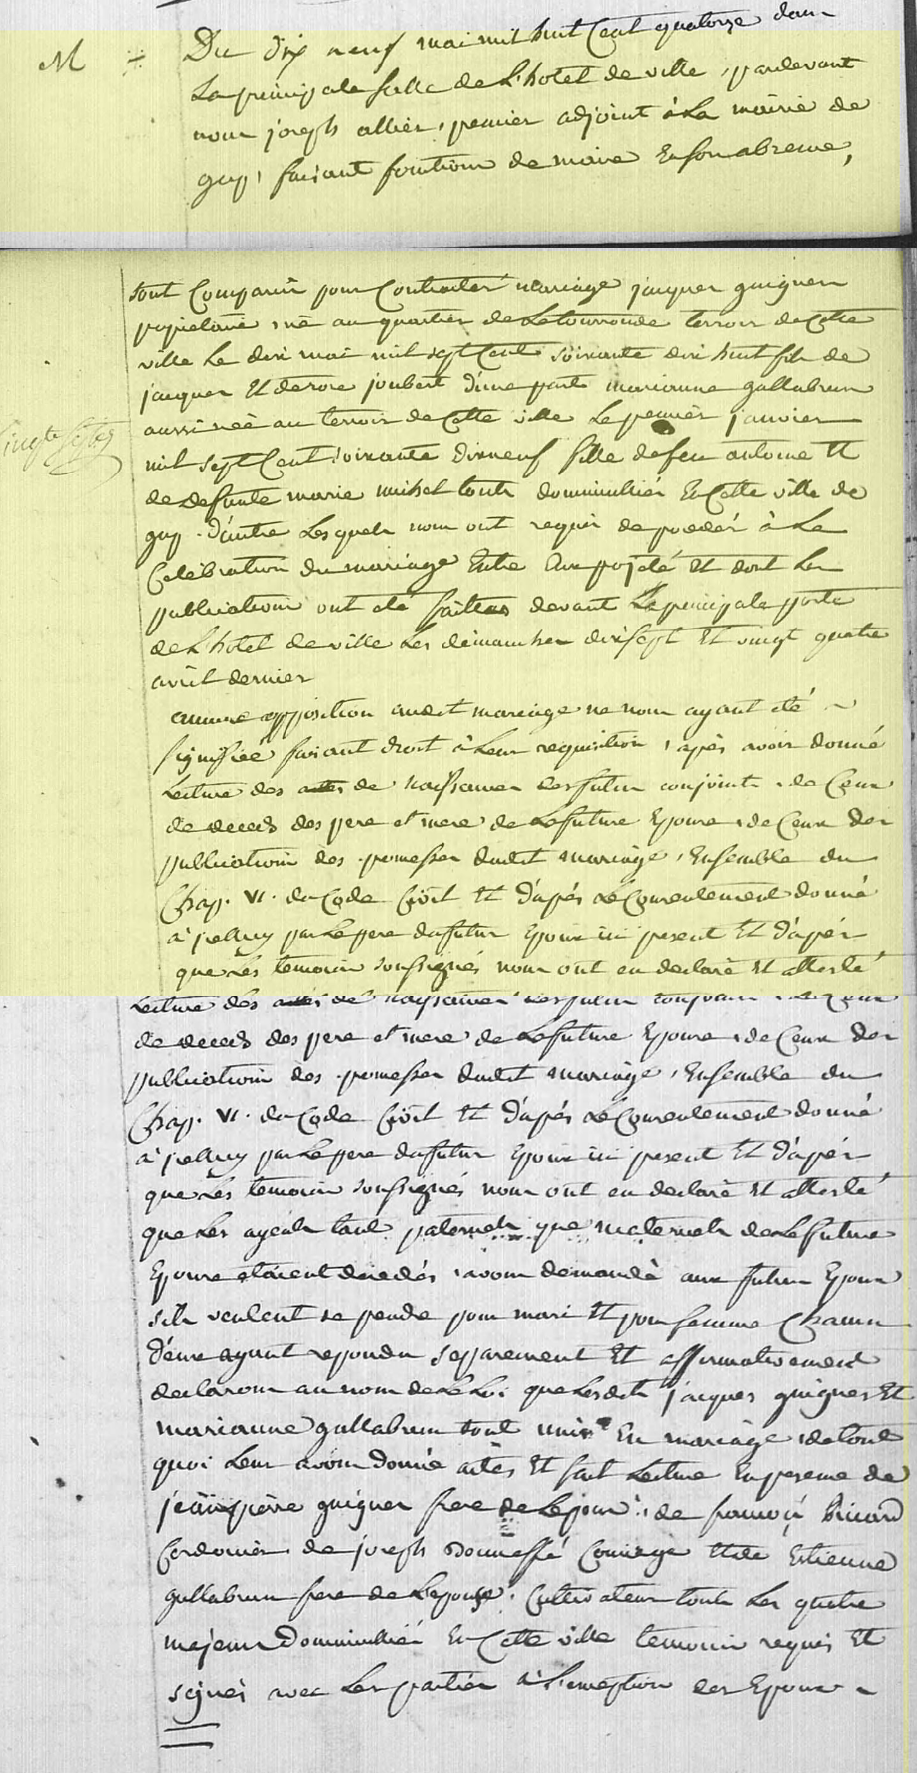 M
Du dix neuf mai mil huit Cent quatorze dans
La principale salle de L'hotel de ville, pardevant
nous joseph allier, premier adjoint à La mairie de
gap, faisant fonctions de maire En son absence,
sont Comparus pour Contracter mariage jacques guignes
propriétaire, né au quartier de Letourronde terroir de Cette
ville Le dix mai mil sept Cent soixante dix huit fils de
jacques Et de rose joubert d'une part marianne gallabrun
aussi née au terroir de Cette ville Le premier janvier
mil sept Cent soixante dix neuf fille de feu antoine Et
de defunte marie michel touts domicilliés En Cette ville de
gap. d'autre Lesquels nous ont requis de proceder à La
Celebration du mariage Entre Eux projeté Et dont Les
publications ont été faittes devant La principale porte
de L'hotel de ville Les dimanches dix sept Et vingt quatre
avril dernier
aucune opposition audit mariage ne nous ayant été
signifiée faisant droit à Leur requisition, après avoir donné
Lecture des actes de naissances des futurs conjoints, de Ceux
de deceds des pere et mere de La future Epouse, de Ceux des
publications des promesses dudit mariage, Ensemble du
Chap. VI. du Code Civil Et d'après Le Consentement donné
à par Le pere du futur Epoux ici present Et d'après
que Les temoins soussignés nous ont eu declaré Et attesté
Lecture des actes de naissances des futurs conjoints, de Ceux
de deceds des pere et mere de La future Epouse, de Ceux des
publications des promesses dudit mariage, Ensemble du
Chap. VI. du Code Civil Et d'après Le Consentement donné
à par Le pere du futur Epoux ici present Et d'après
que Les temoins soussignés nous ont eu declaré Et attesté
que Les ayeuls tant paternels que maternels de La future
Epouse etaient decedés, avons demandé aux futurs Epoux
s'ils veulent se prendre pour mari Et pour femme Chacun
d'eux ayant repondu separement Et affirmativement
declarons au nom de La Loi que Lesdits jacques guignes Et
marianne gallabrun sont unis En mariage, de tout
quoi Leur avons donné actes Et fait Lecture En presence de
jean pierre guignes frere de L'epoux, de françois
Cordonnier de joseph Et de Etienne
gallabrun frere de L'epouse, Cultivateur touts Les quatre
majeurs Domicilliés En Cette ville temoins requis Et
signés avec Les parties à L'exeption des Epoux